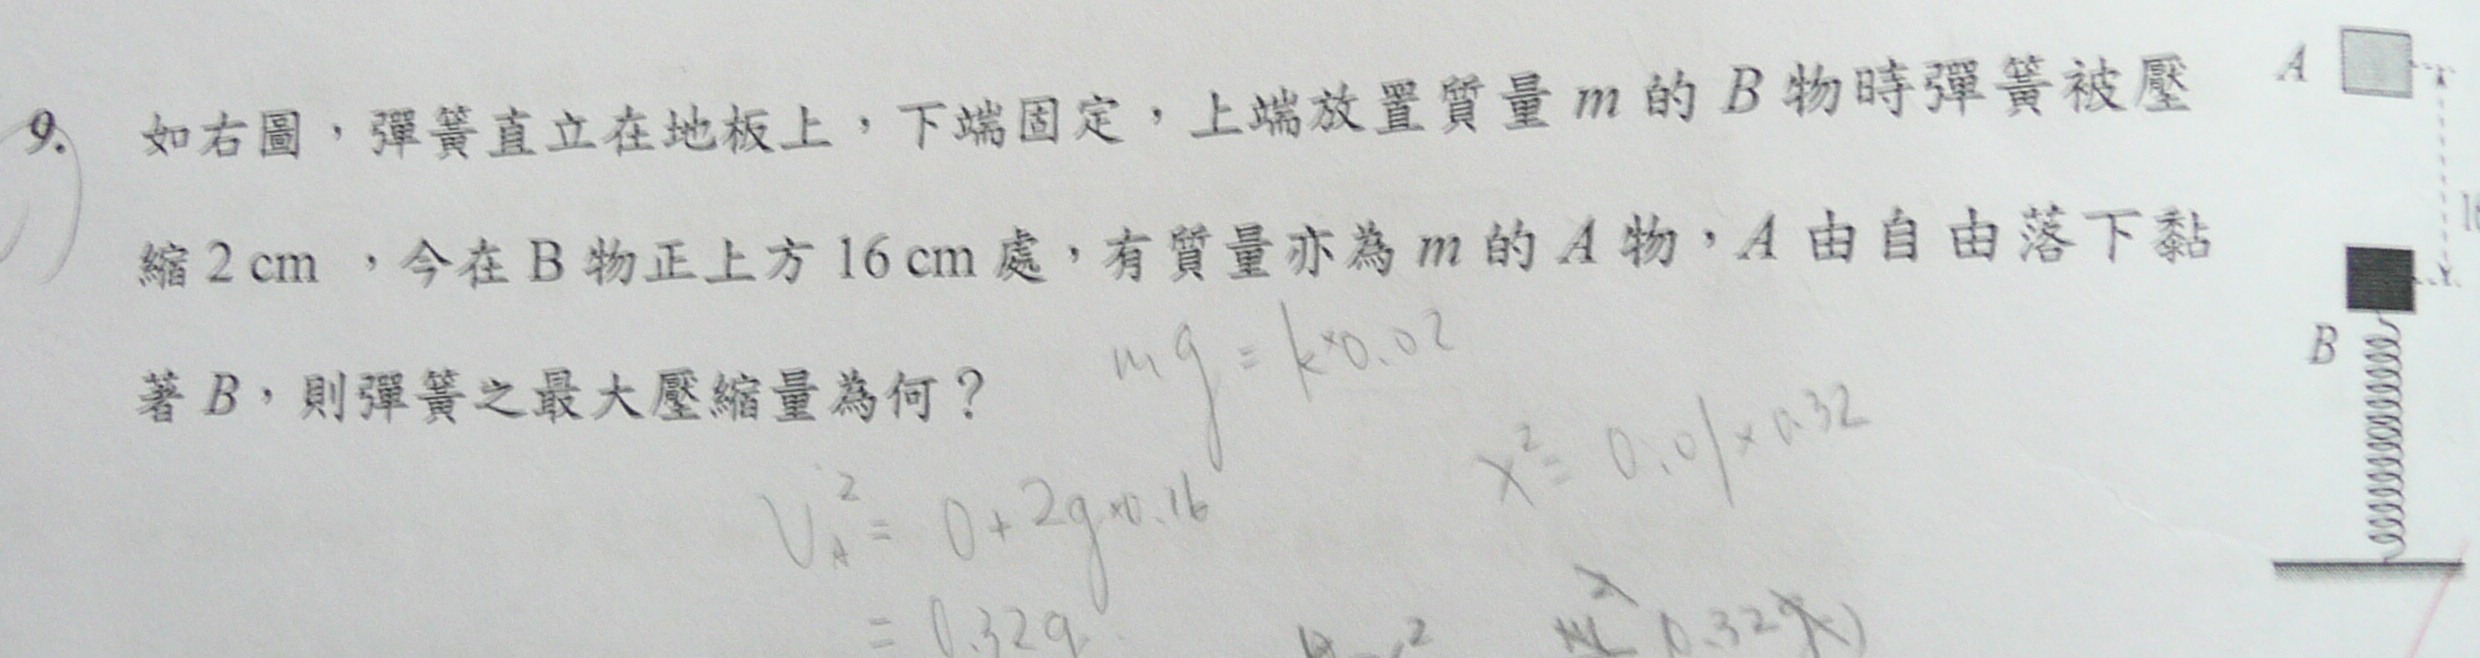 9. 如右圖，彈簧直立在地板上，下端固定，上端放置質量 m 的 B 物時彈簧被壓
縮 2 cm ，今在 B 物正上方 16 cm 處，有質量亦為 m 的 A 物，A 由自由落下黏
著 B，則彈簧之最大壓縮量為何？
A
B
mg = k×0.02
V_A² = 0 + 2g×0.16
= 0.32g
x² = 0.01×0.32